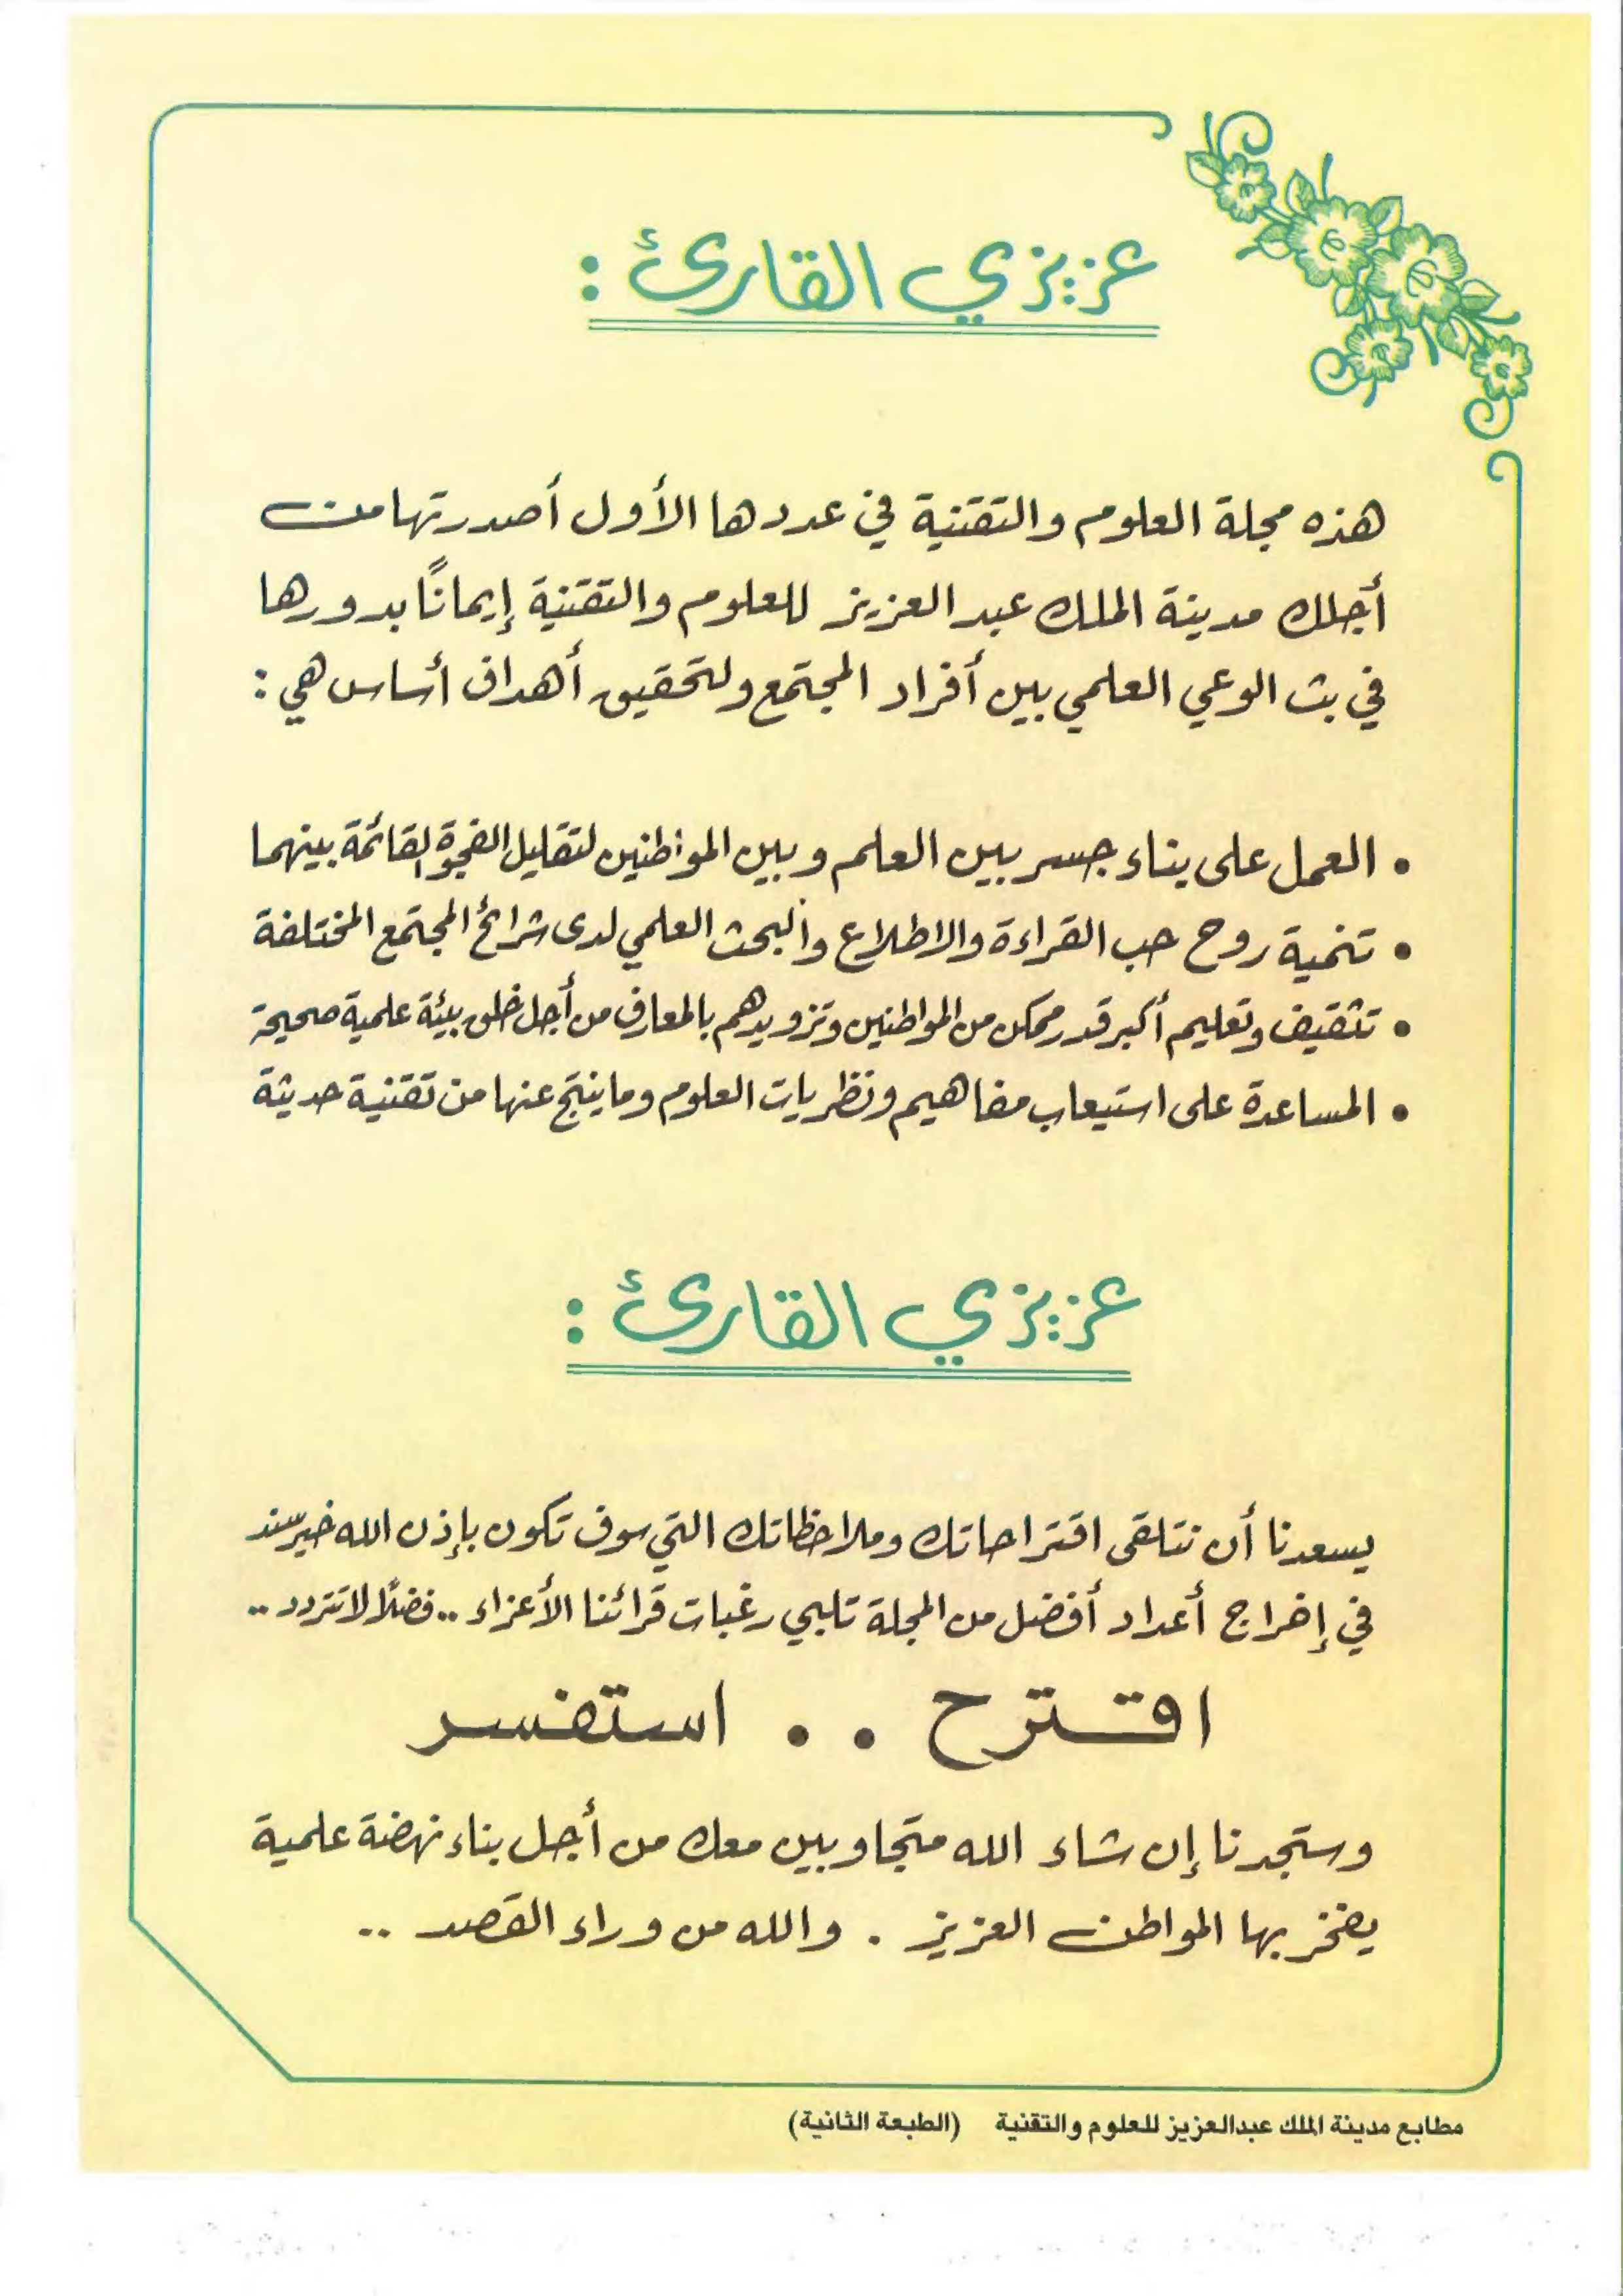 عزيزي القارئ :
هذه مجلة العلوم والتقنية في عددها الأول أصدرتها من
أجلك مدينة الملك عبد العزيز للعلوم والتقنية إيمانًا بدورها
في بث الوعي العلمي بين أفراد المجتمع ولتحقيق أهداف أساس هي :
• العمل على بناء جسر بين العلم وبين المواطنين لتقليل الفجوة القائمة بينهما
• تنمية روح حب القراءة والاطلاع والبحث العلمي لدى شرائح المجتمع المختلفة
• تثقيف وتعليم أكبر قدر ممكن من المواطنين وتزويدهم بالمعارف من أجل خلق بيئة علمية صحيحة
• المساعدة على استيعاب مفاهيم ونظريات العلوم وما ينتج عنها من تقنية حديثة
عزيزي القارئ :
يسعدنا أن نتلقى اقتراحاتك وملاحظاتك التي سوف تكون بإذن الله خير سند
في إخراج أعداد أفضل من المجلة تلبي رغبات قرائنا الأعزاء .. فضلًا لا تتردد ..
اقترح . . استفسر
وستجدنا إن شاء الله متجاوبين معك من أجل بناء نهضة علمية
يفخر بها المواطن العزيز . والله من وراء القصد ..
مطابع مدينة الملك عبدالعزيز للعلوم والتقنية (الطبعة الثانية)